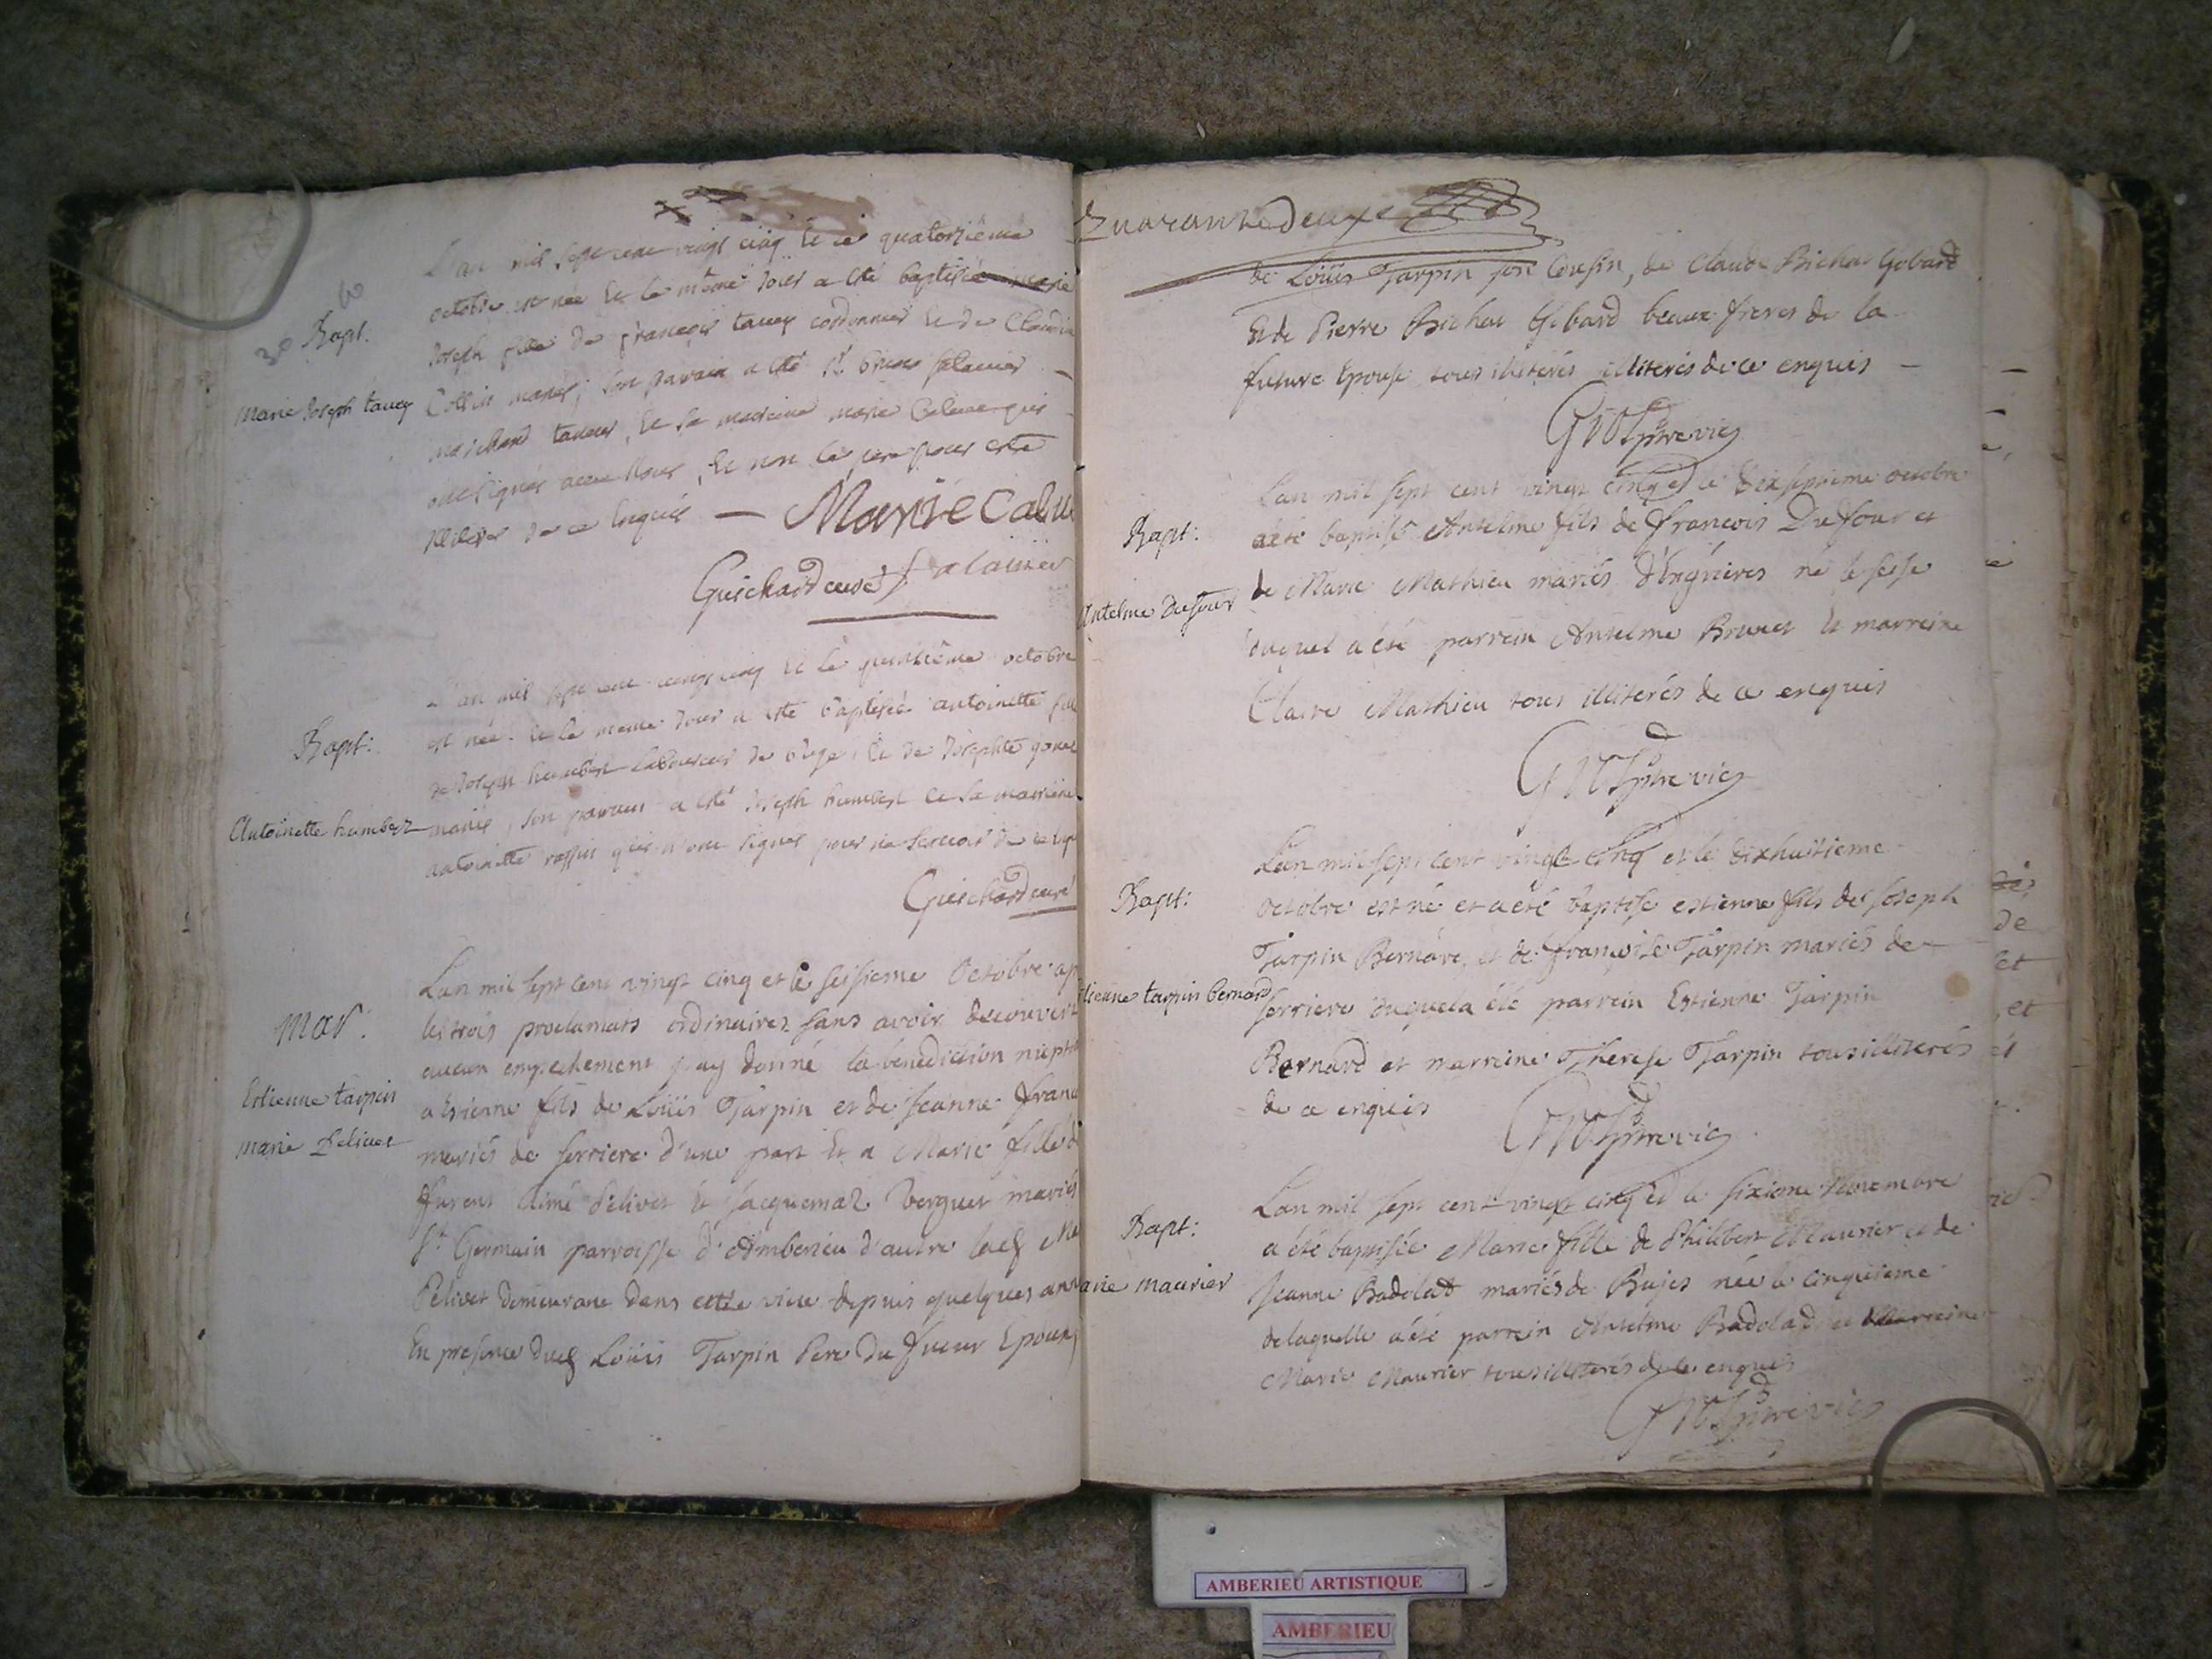 L'an mil sept cent vingt cinq et le quatorzième
octobre est née et le même jour a esté baptisée marie
30 Bapt. Joseph fille de françois tavey cordonnier et de Claudine
Marie Joseph tavey Collin mariés; son parain a esté
marchand taneur, et sa maraine marie
ont signés avec Nous, et non le père pour estre
illiteré de ce enquis — Marie Calu
Guichard curé
L'an mil sept cent vingt cinq et le quinzième octobre
Bapt: est née et le meme jour a esté baptisée antoinette fille
de Joseph humbert laboureur de et de Josephte
Antoinette humbert mariés, son parain a esté Joseph humbert et sa maraine
antoinette qui n'ont signés pour ne scavoir de ce
Guichard curé
Lan mil sept cent vingt cinq et le seisieme Octobre ap
Mar. les trois proclamats ordinaires sans avoir decouvert
aucun empechement j'ay donné la benediction nupt
Estienne tarpin a Estienne fils de Loüis Tarpin et de Jeanne franc
Marie Pelivet mariés de serriere d'une part et a Marie fille d
furent Aimé Pelivet et Jacquemaz Verguet mariés
St Germain parroisse d'Amberieu d'autre
Pelivet demeurant dans cette ville depuis quelques ann
En presence dud Loüis Tarpin Pere du futur Epoux
Quarante deux
de Loüis Tarpin son Cousin, de Claude Bichat Gobard
et de Pierre Bichat Gobard beaux freres de la
future Epouse tous illiterés illiterés de ce enquis —
Lan mil sept cent vingt cinq et le dixseptieme octobre
Bapt: a été baptisé Antelme fils de françois Dufour et
de Marie Mathieu mariés né le seise
Antelme dufour duquel a été parrein Antelme Brunet et marreine
Claire Mathieu tous illiterés de ce enquis
Lan mil sept cent vingt cinq et le dixhuitieme
Bapt: Octobre est né et a été baptisé estienne fils de Joseph
Tarpin Bernard, et de françoise Tarpin mariés de
Etienne tarpin bernard serriere duquel a été parrein Estienne Tarpin
Bernard et marreine Therese Tarpin tous illiterés
de ce enquis
Lan mil sept cent vingt cinq et le sixieme Novembre
Bapt: a été baptisée Marie fille de Philibert Maurier et de
Jeanne Badolat mariés de Bujes née le cinquieme
arie maurier delaquelle a été parrein Antelme Badolad et Marreine
Marie Maurier tous illiterés de ce enquis
AMBERIEU ARTISTIQUE
AMBERIEU